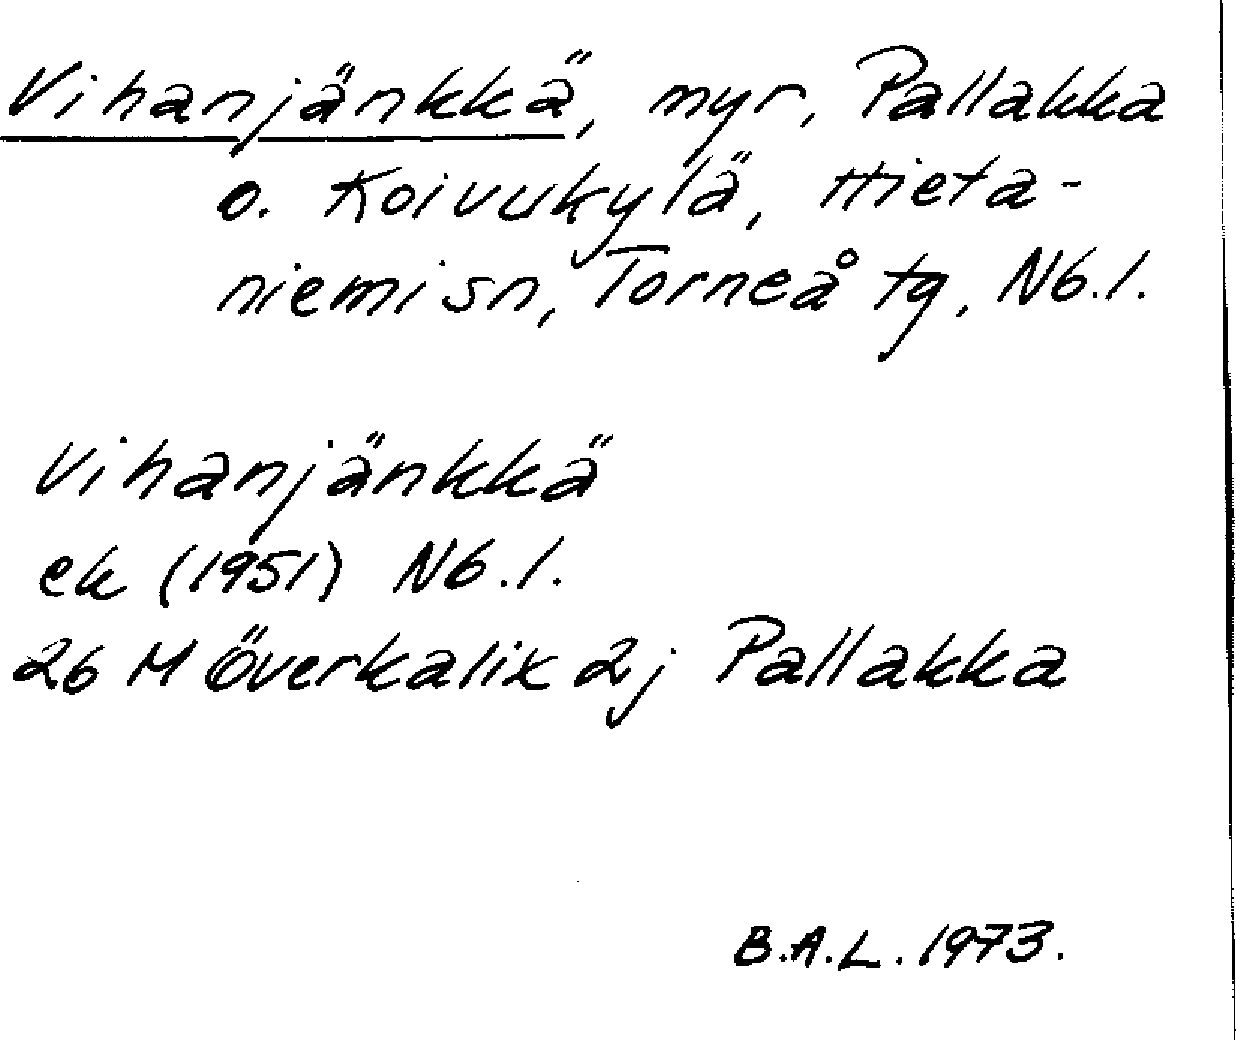 Vihanjänkkä, myr, Pallakka
o. Koivukylä, Hieta-
niemi sn, Torneå tg, Nb.l.
Vihanjänkkä
ek (1951) Nb.l.
26 M Överkalix 2j Pallakka
B.A.L. 1973.